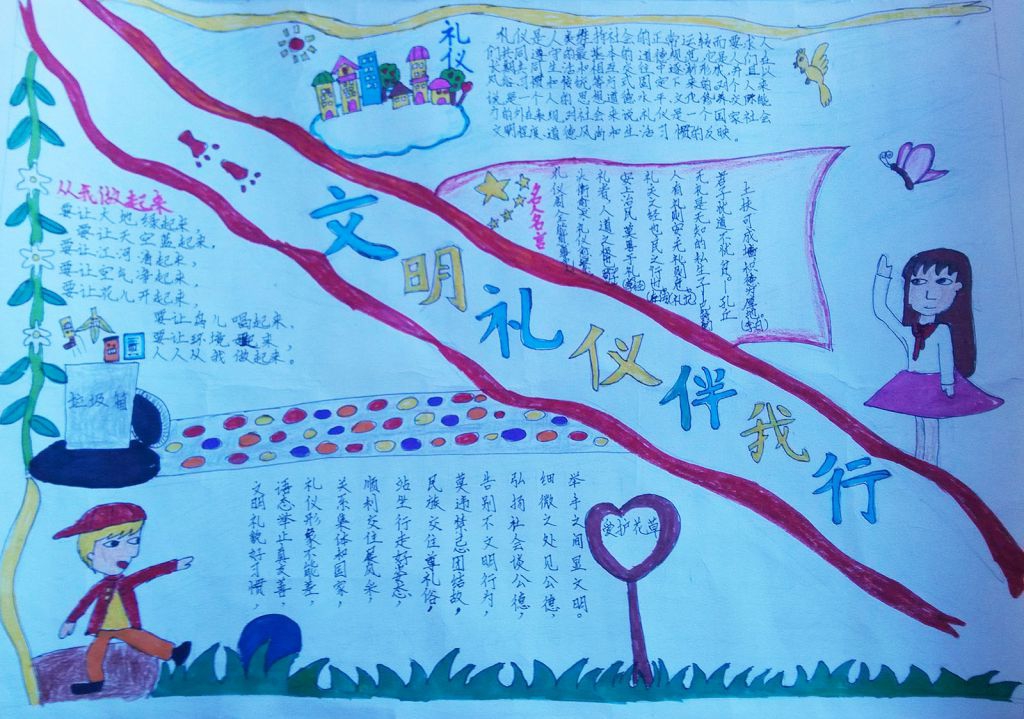 文明礼仪伴我行
礼仪
礼仪是人类维持社会的正常运转而要求人
们共同遵守的最基本的道德规范,它是人们在
长期共同生活和相互交往中逐渐形成,并且以
风俗习惯和传统等方式固定下来的。对个人来
说是一个人的思想道德水平,文化修养交际能
力的外在表现,对社会来说,礼仪是一个国家社会
文明程度,道德风尚和生活习惯的反映。
名人名言
土扶可成墙,积德为厚地。(李白)
无礼是无知的私生子
人有礼则安,无礼则危(礼记)
礼,天之经也,民之行也
安上治民,莫善于礼
从我做起来
要让大地绿起来,
要让天空蓝起来,
要让江河清起来,
要让空气净起来,
要让花儿开起来,
要让鸟儿唱起来,
要让环境起来,
人人从我做起来。
垃圾箱
文明礼貌好习惯,
语态举止真美善,
礼仪形象不能差,
关系集体和国家,
顺利交往展风采,
站坐行走好姿态,
民族交往尊礼俗,
莫违禁忌团结故,
告别不文明行为,
弘扬社会公德,
细微之处见公德,
举手之间显文明。
爱护花草